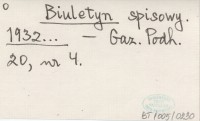 Biuletyn spisowy.
1932... — Gaz. Podh.
20, nr 4.
BT/009/0290